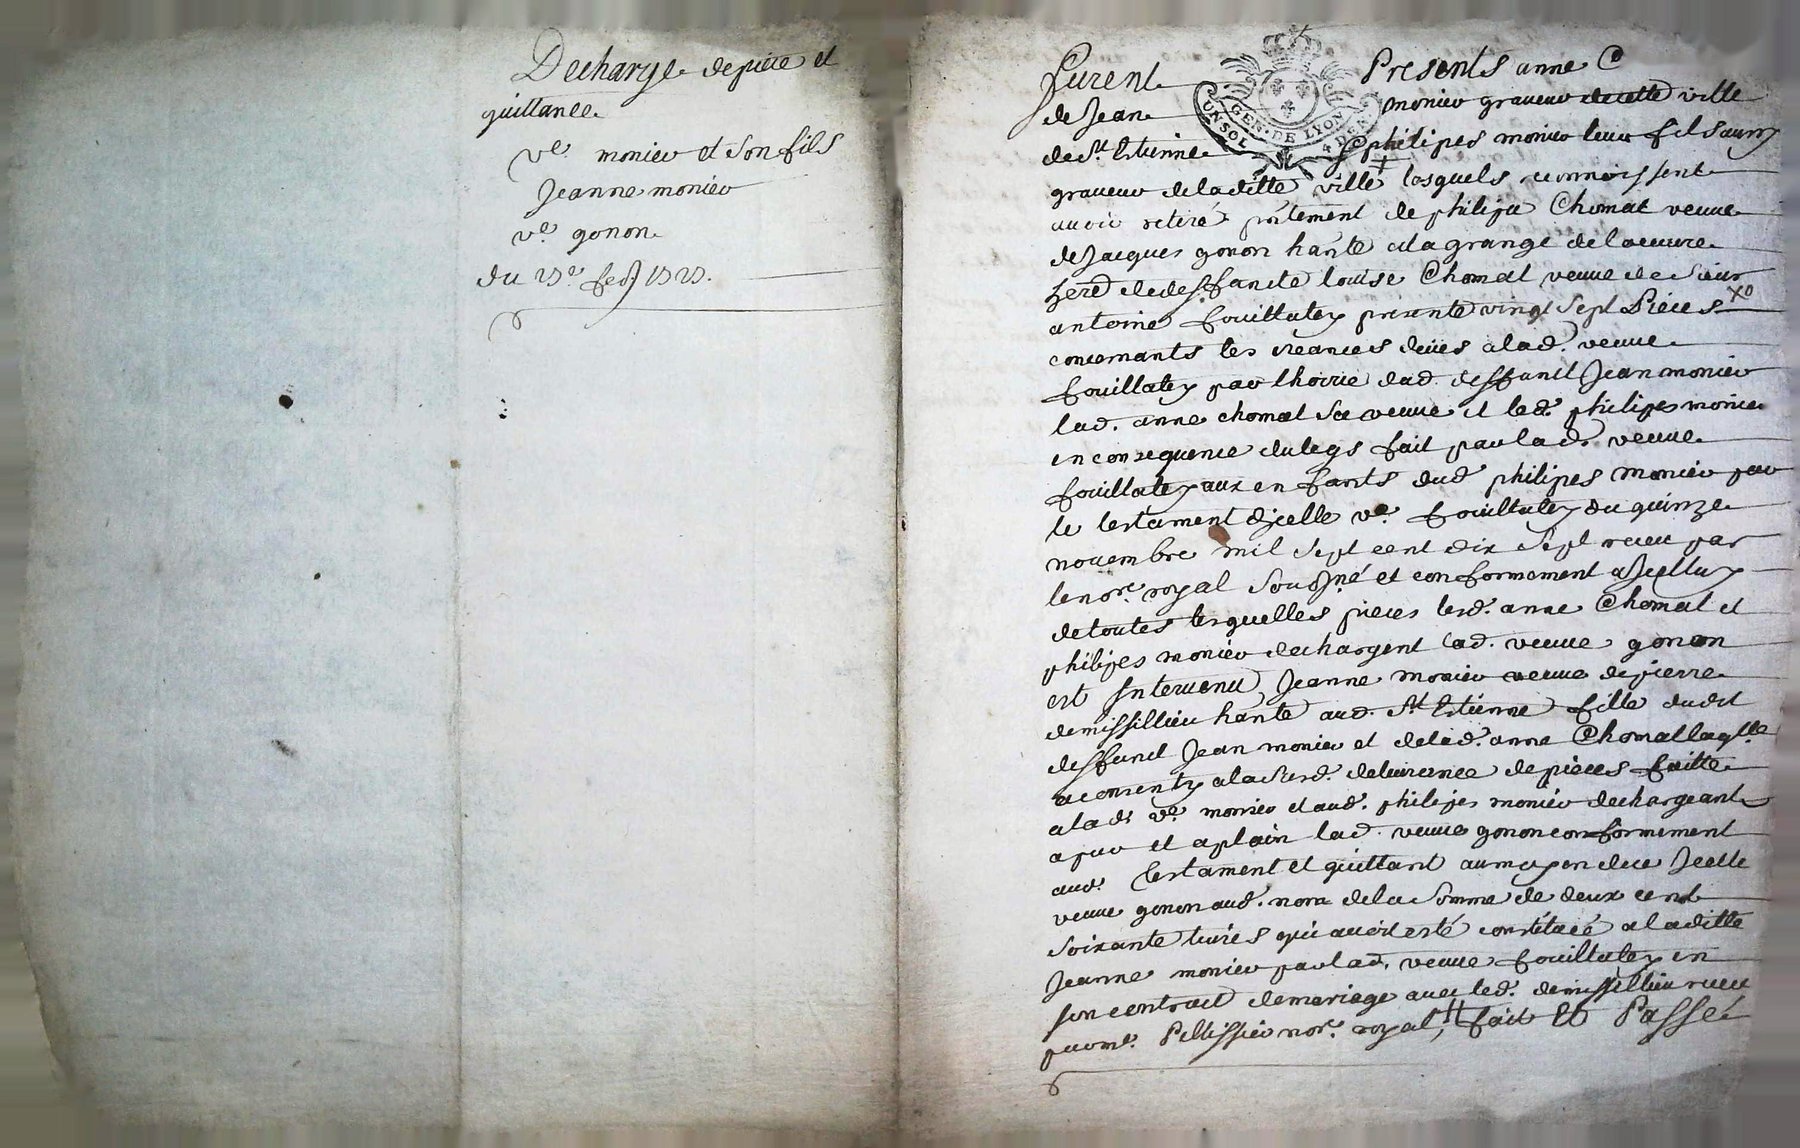 Decharge de piece et
quittance
ve. monier et son fils
Jeanne monier
ve gonon
du
Furent Presents anne C
GEN. DE LYON
UN SOL
de Jean monier graveur de cette ville
de St. Estienne & philipes monier leur fils aussy
graveur de laditte ville lesquels reconnoissent
avoir retiré pntement de philipa Chomat veuve
de Jacques gonon hante a la grange de loeuvre
hered de deffuncte louise Chomat veuve de sieur
antoine fouillatey presente vingt sept Pieces
concernants les creances deües a lad. veuve
fouillatey par lhoirie dud. deffunct Jean monier
lad. anne chomat sa veuve et led. philipes monier
en consequence du legs fait par lad. veuve
fouillatey aux enfants dud philipes monier par
le testament dicelle ve. fouillatey du quinze
novembre mil sept cent dix sept receu par
le nore. royal sousgné et conformement a Jcelluy
de toutes lesquelles pieces lesd. anne Chomat et
philipes monier dechargent lad. veuve gonon
est Intervenu Jeanne monier veuve de pierre
demissillieu hante aud. St Estienne fille dudit
deffunct Jean monier et de lad. anne Chomat laqlle
a consenty a la susd. delivrance de pieces faitte
a lad. ve. monier et aud. philipes monier dechargeant
a pur et a plain lad. veuve gonon conformement
aud. testament et quittant au moyen de ce Jcelle
veuve gonon aud. nom de la somme de deux cent
soixante livres qui avoit esté constituée a laditte
Jeanne monier par lad. veuve fouillatey en
son contract de mariage avec led. demissillieu receu
par me. Pellissier nore. royal, fait Et Passé